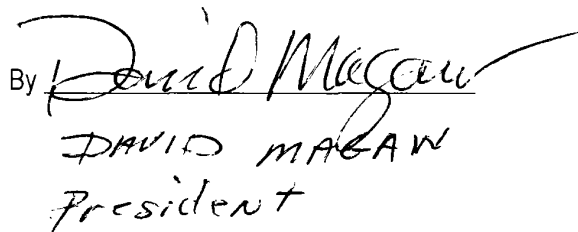 By David Magaw
DAVID MAGAW
President